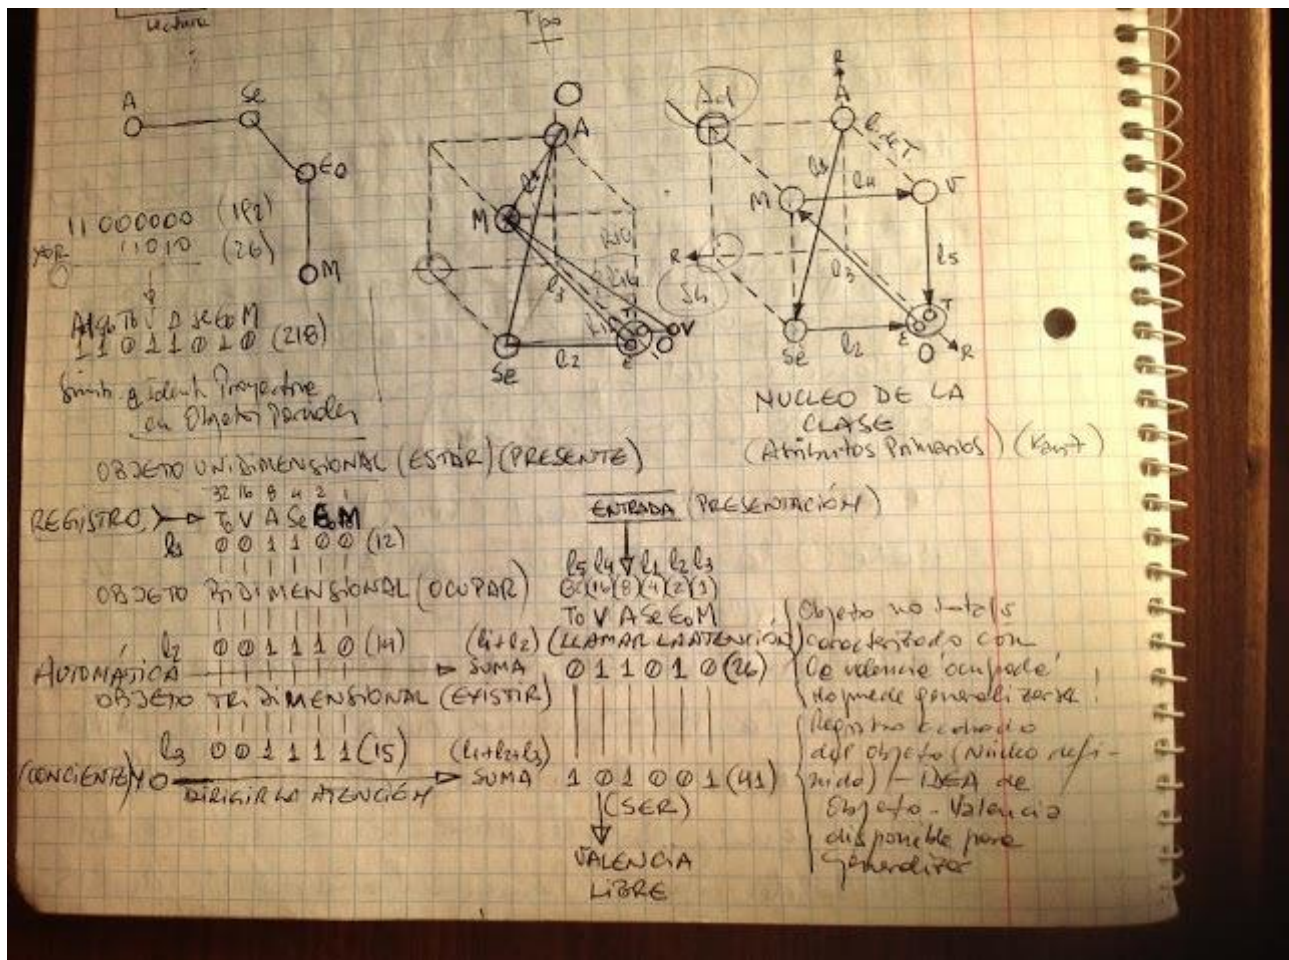 Lectura
Tpo
A Se Eo M
11 000000 (192)
XOR 11010 (26)
Ad Sh To V A Se Eo M
1 1 0 1 1 0 1 0 (218)
en Objetos Parciales
O
A
M
l3
R10
R16
Se l2 E V
O
Ad
R
A
l1 l de T.
M l4 V
R Sh l3 l5
T
Se l2 E O R
NUCLEO DE LA
CLASE
(Atributos Primarios) (Kant)
OBJETO UNIDIMENSIONAL (ESTAR) (PRESENTE)
32 16 8 4 2 1
REGISTRO To V A Se Eo M
l1 0 0 1 1 0 0 (12)
OBJETO BIDIMENSIONAL (OCUPAR)
l2 0 0 1 1 1 0 (14)
AUTOMÁTICA
OBJETO TRIDIMENSIONAL (EXISTIR)
l3 0 0 1 1 1 1 (15)
(CONCIENTE) YO DIRIGIR LA ATENCIÓN
ENTRADA (PRESENTACIÓN)
l5 l4 l1 l2 l3
(16)(8)(4)(2)(1)
To V A Se Eo M
(l1+l2) (LLAMAR LA ATENCIÓN)
SUMA 0 1 1 0 1 0 (26)
(l1+l2+l3)
SUMA 1 0 1 0 0 1 (41)
(SER)
VALENCIA
LIBRE
Objeto no
caracterizado con
la valencia 'ocupada'
No puede generalizarse!
Registro acabado
del objeto (Núcleo defi-
nido) - IDEA de
Objeto - Valencia
disponible para
generalizar